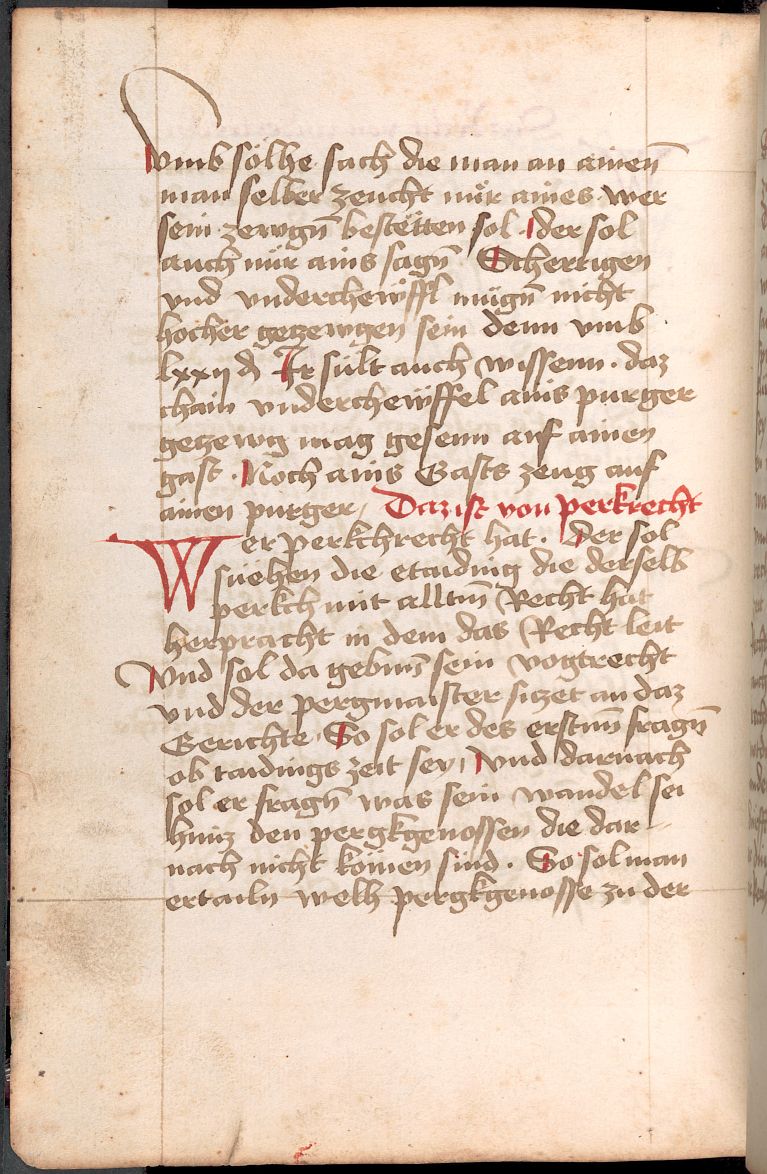 vmb sölhe sach die man an ainen̄
man selber zeucht nür aines wer
sein zewgn̄ bestëtten sol . der sol
auch nür ains sagn̄ Scherrigen
vnd vnderchewffl mügn̄ nicht
hocher getzewgen sein denn vmb
lxxij d̶ Ir sült auch wissenn . daz
chain vnderchewffel ains purger
getzewg mag gesenn auf ainen
gast . Noch ains Gasts zeug auf
ainen purger / Daz ist von perkrecht
Wer perkchrecht hat . Der sol
süehen die etaiding die derselb
perkch mit alltm̄ Recht hat
herpracht in dem das Recht leit
Vnd sol da gebm̄ sein vogtrecht
vnd der pergmaister siczet an daz
Gerichte . So sol er des erstm̄ fragn̄
ob taidings zeit sey / Vnd darnach
sol er fragn̄ was sein wandel sei
hincz den pergkgenossen die dar-
nach nicht kömen sind . So sol man
ertailn welh pergkgenosse zu der